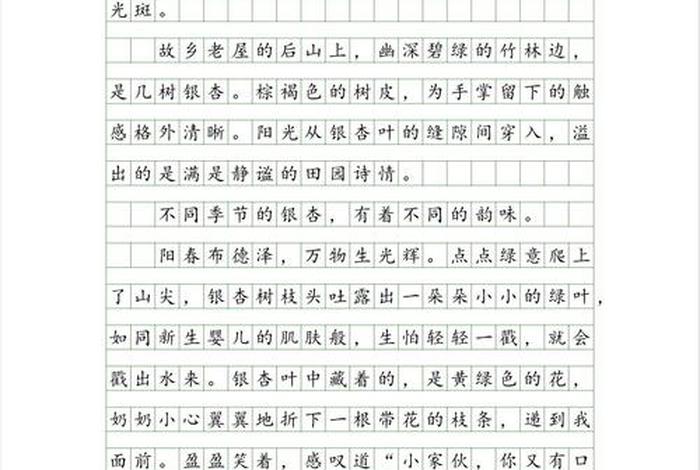 光斑。
故乡老屋的后山上，幽深碧绿的竹林边，
是几树银杏。棕褐色的树皮，为手掌留下的触
感格外清晰。阳光从银杏叶的缝隙间穿入，溢
出的是满是静谧的田园诗情。
不同季节的银杏，有着不同的韵味。
阳春布德泽，万物生光辉。点点绿意爬上
了山尖，银杏树枝头吐露出一朵朵小小的绿叶，
如同新生婴儿的肌肤般，生怕轻轻一戳，就会
戳出水来。银杏叶中藏着的，是黄绿色的花，
奶奶小心翼翼地折下一根带花的枝条，递到我
面前。盈盈笑着，感叹道“小家伙，你又有口